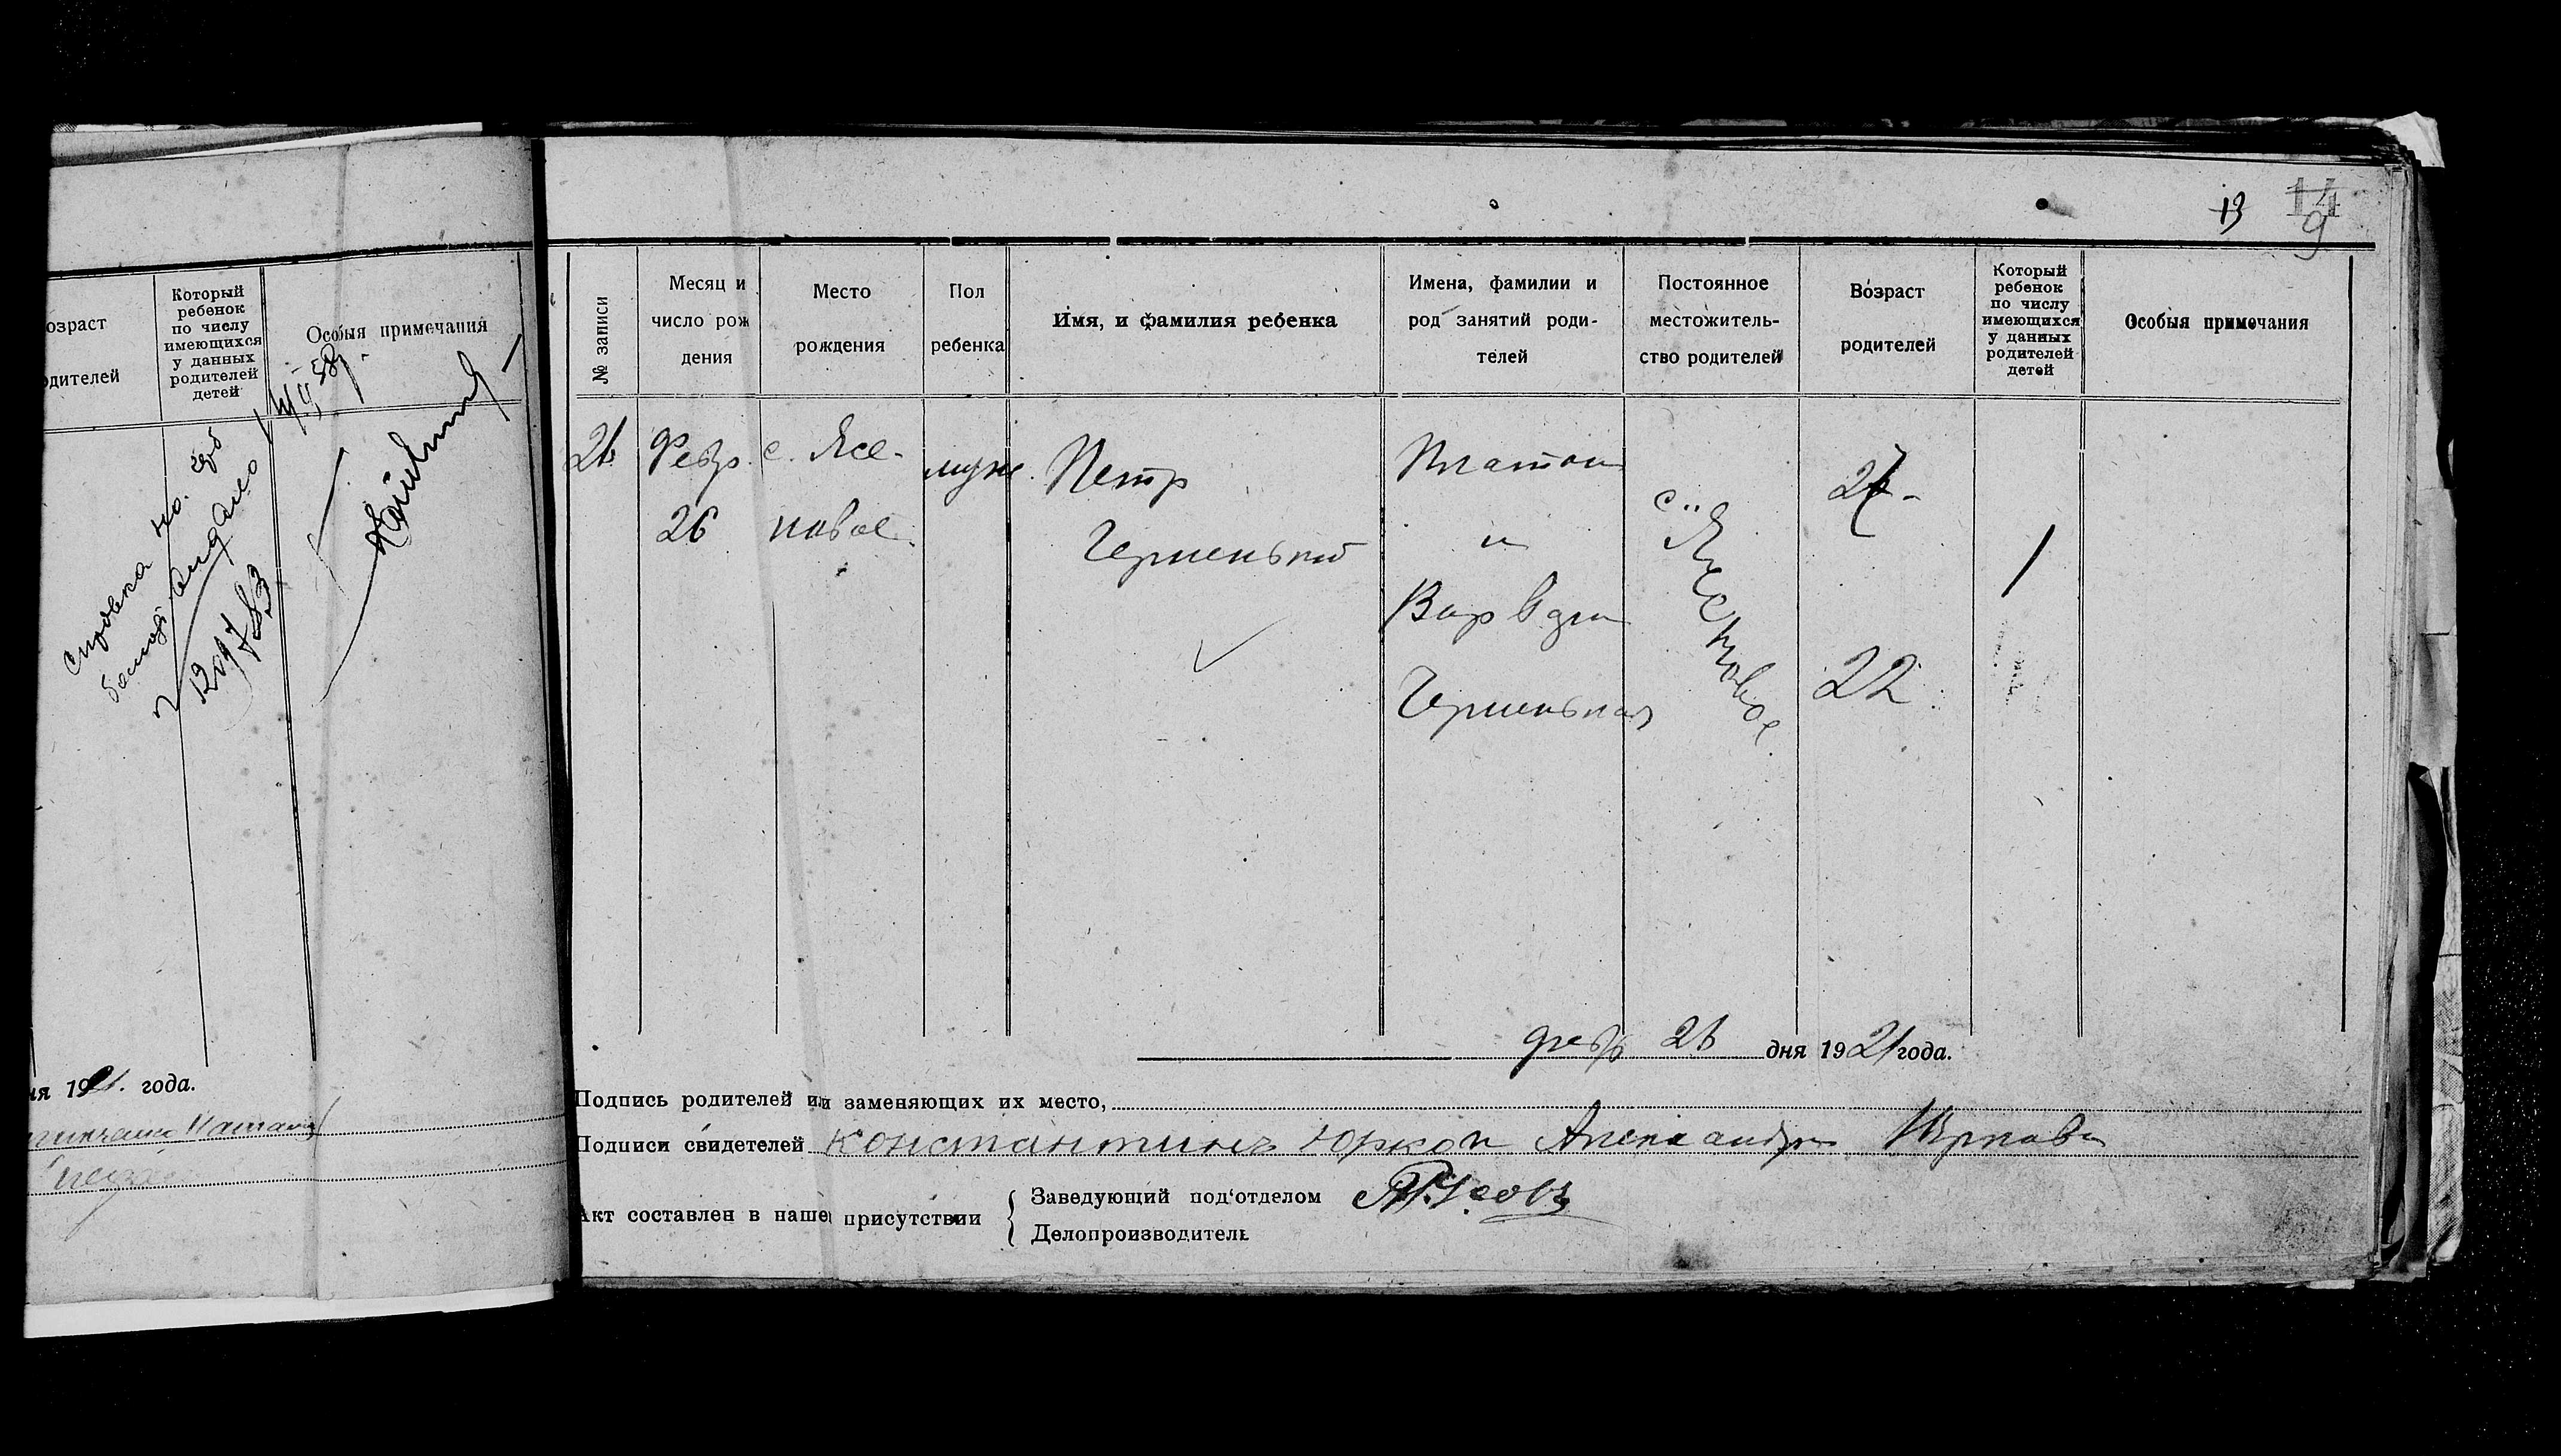 13 14
9
озраст
одителей
Который
ребенок
по числу
имеющихся
у данных
родителей
детей
Особыя примечания
Справка
выдано
ня 1921. года.
№ записи
Месяц и
число рож
дения
Место
рождения
Пол
ребенка
Имя, и фамилия ребенка
Имена, фамилии и
род занятий роди-
телей
Постоянное
местожитель-
ство родителей
Возраст
родителей
Который
ребенок
по числу
имеющихся
у данных
родителей
детей
Особыя примечания
26 Февр. с. Ясе- муж. Петр Платон 27 -
26 новое Черненький и с. Ясеновое 1
Варвара
Черненькая 22
февр 26 дня 1921 года.
Подпись родителей или заменяющих их место,
Подписи свидетелей Константинъ Юрков Александра Юркова
Акт составлен в нашем присутствии
Заведующий под'отделом
Делопроизводитель